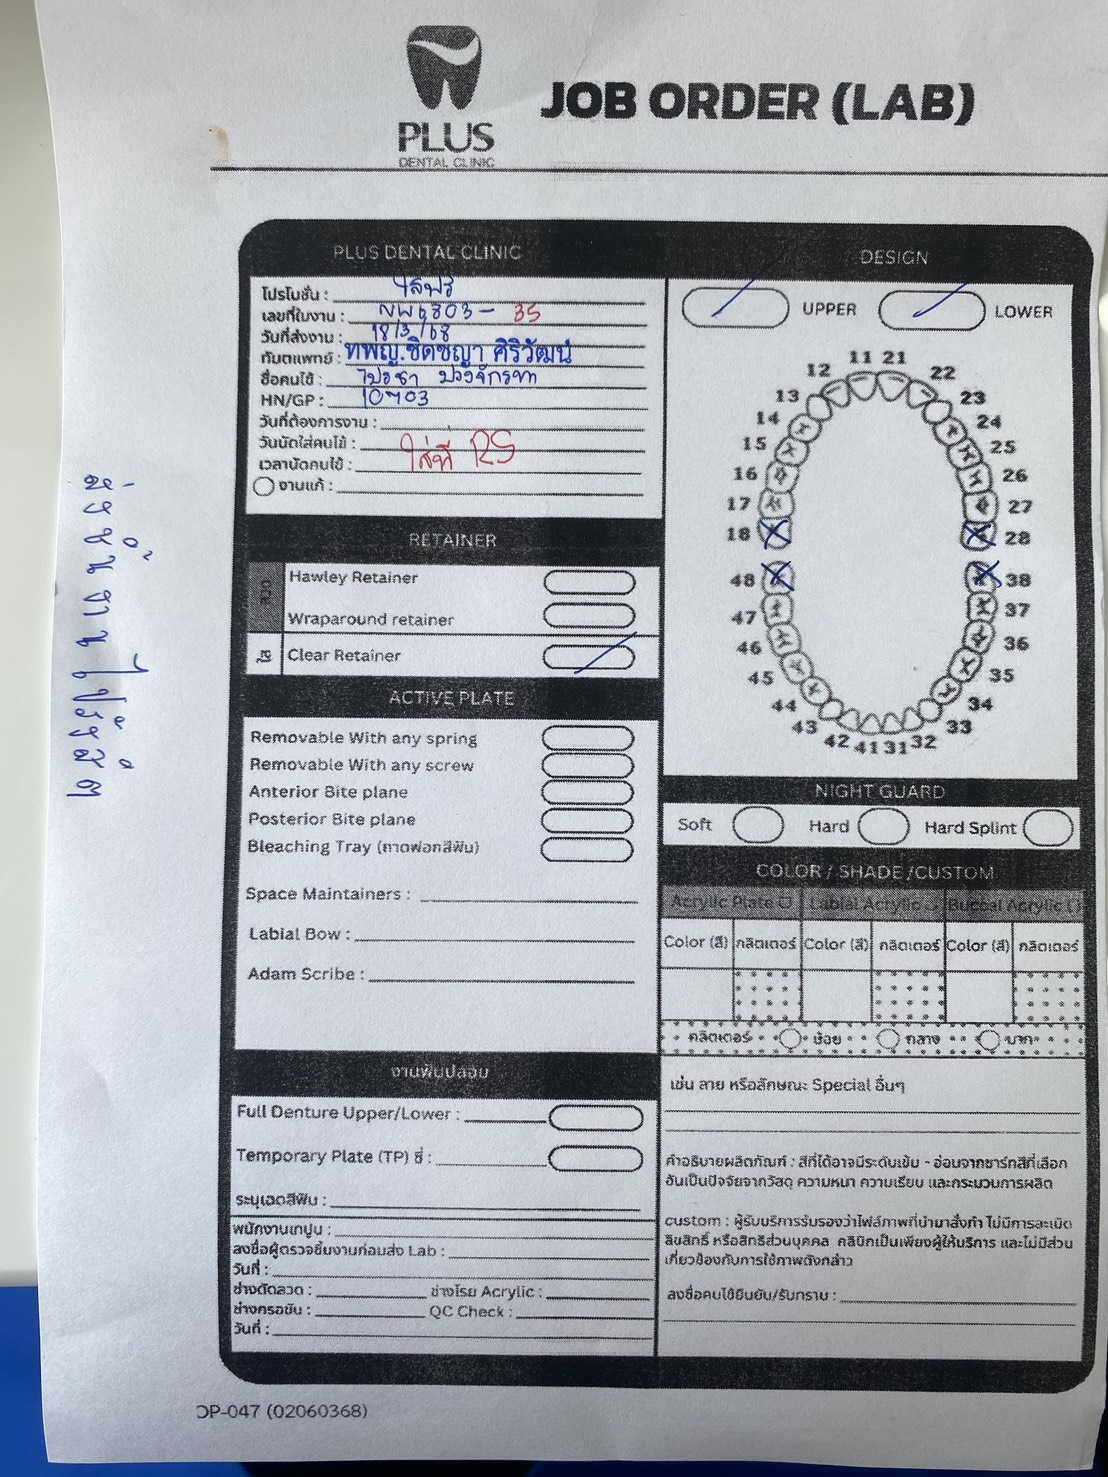 PLUS
DENTAL CLINIC
JOB ORDER (LAB)
PLUS DENTAL CLINIC
โปรโมชั่น : ใสฟรี
เลขที่ใบงาน : NW6803-35
วันที่ส่งงาน : 18/3/68
ทันตแพทย์ : ทพญ.ชิดชญา ศิริวัฒน์
ชื่อคนไข้ :
HN/GP : 10703
วันที่ต้องการงาน :
วันนัดใส่คนไข้ : ใส่ที่ RS
เวลานัดคนไข้ :
งานแก้ :
RETAINER
ลวด
Hawley Retainer
Wraparound retainer
ใส
Clear Retainer
ACTIVE PLATE
Removable With any spring
Removable With any screw
Anterior Bite plane
Posterior Bite plane
Bleaching Tray (ถาดฟอกสีฟัน)
Space Maintainers :
Labial Bow :
Adam Scribe :
งานฟันปลอม
Full Denture Upper/Lower :
Temporary Plate (TP) ซี่ :
ระบุเฉดสีฟัน :
พนักงานเทปูน :
ลงชื่อผู้ตรวจชิ้นงานก่อนส่ง Lab :
วันที่ :
ช่างดัดลวด : ช่างโรย Acrylic :
ช่างกรอขัด : QC Check :
วันที่ :
DESIGN
UPPER LOWER
11 21
12 22
13 23
14 24
15 25
16 26
17 27
18 28
48 38
47 37
46 36
45 35
44 34
43 33
42 41 31 32
NIGHT GUARD
Soft Hard Hard Splint
COLOR / SHADE /CUSTOM
Acrylic Plate Labial Acrylic Buccal Acrylic
Color (สี) กลิตเตอร์ Color (สี) กลิตเตอร์ Color (สี) กลิตเตอร์
กลิตเตอร์ น้อย กลาง มาก
เช่น ลาย หรือลักษณะ Special อื่นๆ
คำอธิบายผลิตภัณฑ์ : สีที่ได้อาจมีระดับเข้ม - อ่อนจากชาร์ทสีที่เลือก
อันเป็นปัจจัยจากวัสดุ ความหนา ความเรียบ และกระบวนการผลิต
custom : ผู้รับบริการรับรองว่าไฟล์ภาพที่นำมาสั่งทำ ไม่มีการละเมิด
ลิขสิทธิ์ หรือสิทธิส่วนบุคคล คลินิกเป็นเพียงผู้ให้บริการ และไม่มีส่วน
เกี่ยวข้องกับการใช้ภาพดังกล่าว
ลงชื่อคนไข้ยืนยัน/รับทราบ :
OP-047 (02060368)